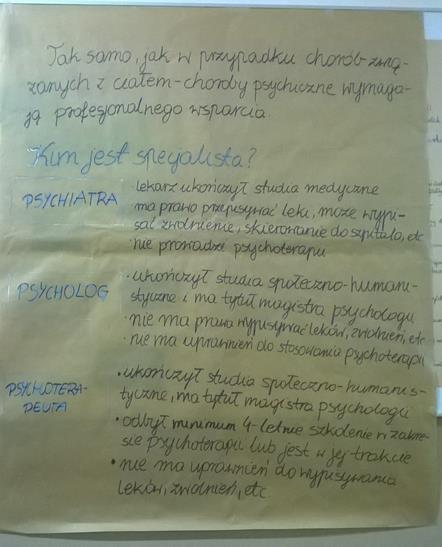 Tak samo, jak w przypadku chorób zwią-
zanych z ciałem - choroby psychiczne wymaga-
ją profesjonalnego wsparcia.
Kim jest specjalista?
PSYCHIATRA
· lekarz ukończył studia medyczne
· ma prawo przepisywać leki, może wypi-
sać zwolnienie, skierowanie do szpitala, etc
· nie prowadzi psychoterapii
PSYCHOLOG
· ukończył studia społeczno-humani-
styczne i ma tytuł magistra psychologii
· nie ma prawa wypisywać leków, zwolnień, etc
· nie ma uprawnień do stosowania psychoterapii
PSYCHOTERA-
PEUTA
· ukończył studia społeczno-humanis-
tyczne, ma tytuł magistra psychologii
· odbył minimum 4-letnie szkolenie w zakre-
sie psychoterapii lub jest w jej trakcie
· nie ma uprawnień do wypisywania
leków, zwolnień, etc